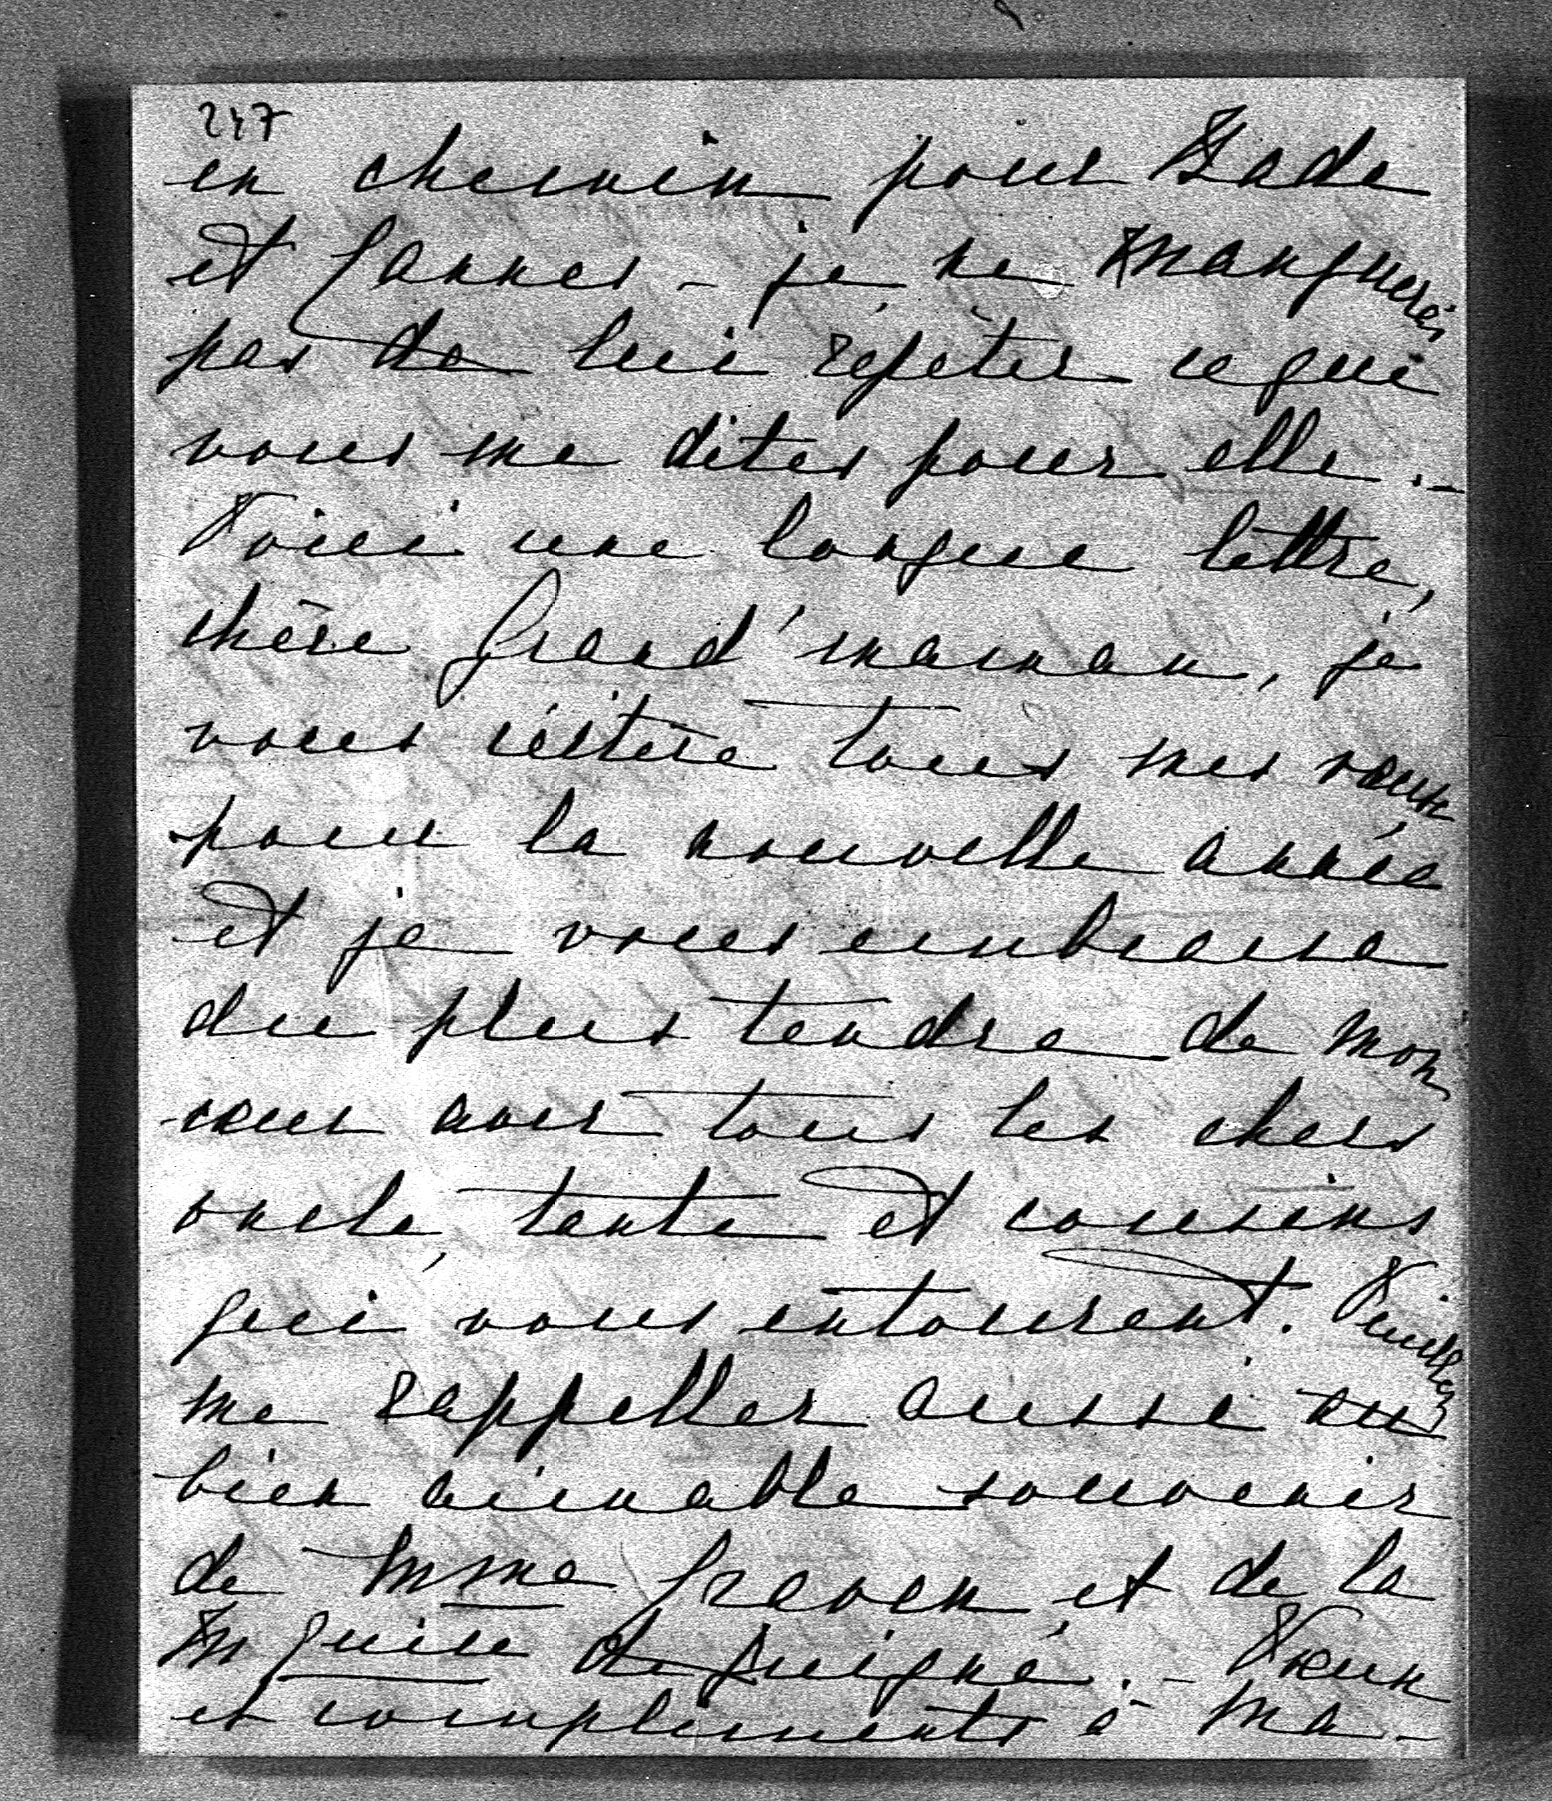 247
en chemin pour Bade
et Cannes - je ne manquerai
pas de lui répéter ce que
vous me dites pour elle. -
Voici une longue lettre,
chère Grand'maman, je
vous réitère tous mes vœux
pour la nouvelle année
et je vous embrasse
du plus tendre de mon
cœur avec tous les chers
oncle, tante et cousins
qui vous entourent. Veuillez
me rappeller aussi au
bien aimable souvenir
de Mme Greven et de la
Mquise de . - Vœux
et compliments à Ma-